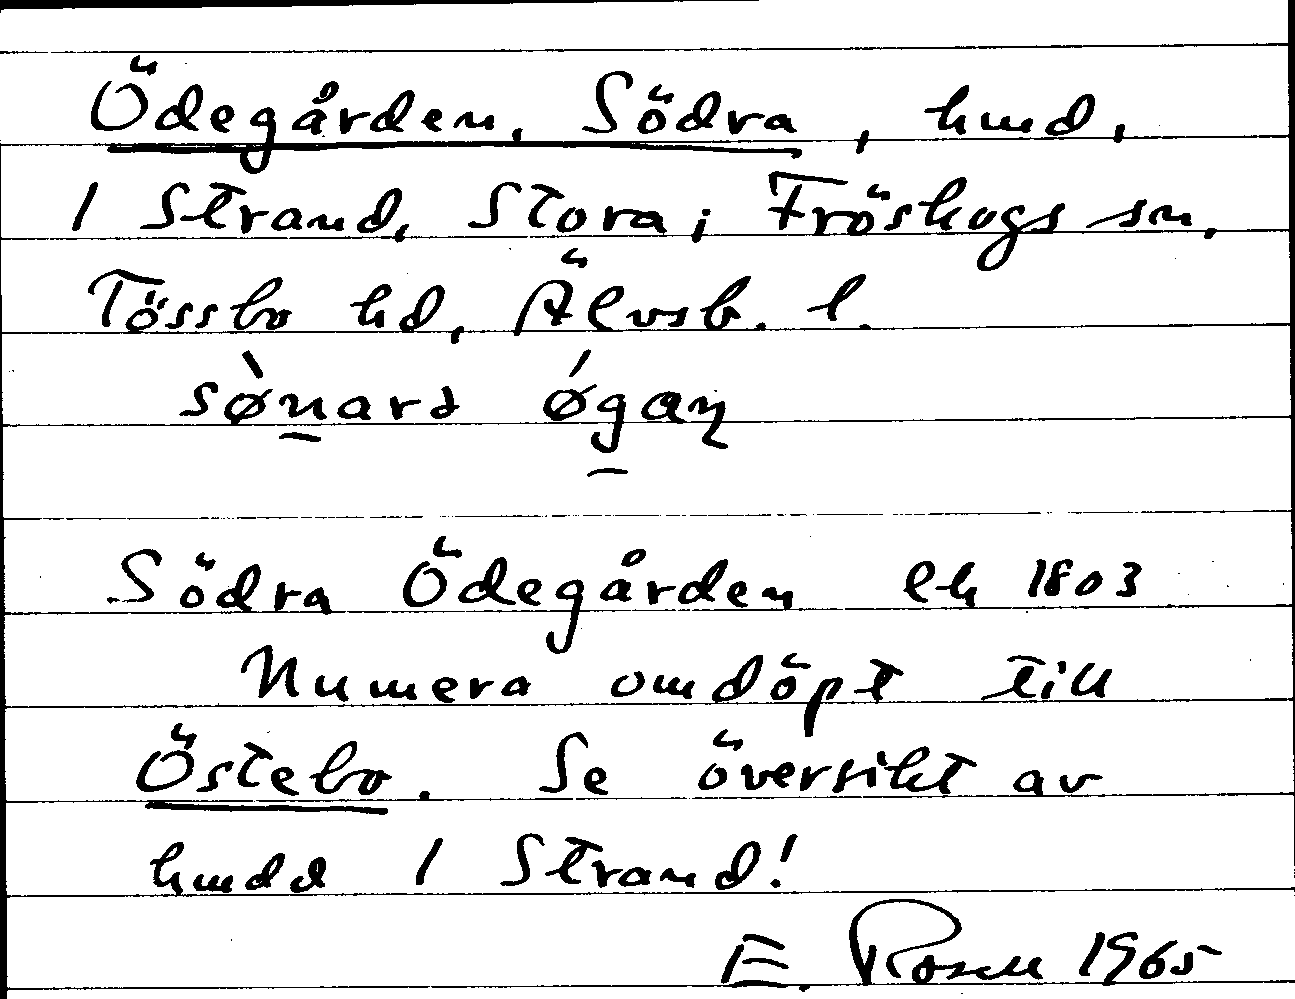 Ödegården, Södra, hmd,
1 Strand, Stora; Fröskogs sn.
Tössbo hd, Älvsb. l.
sø̀narə ǿgaɳ
Södra Ödegården Ek 1803
Numera omdöpt till
Östebo. Se översikt av
hmdd 1 Strand!
E. Rosell 1965